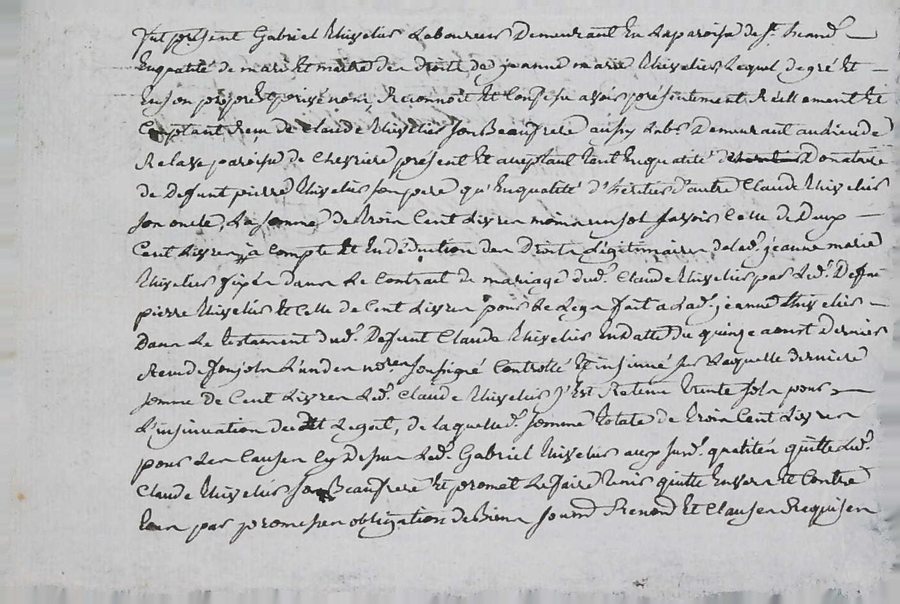 fut présent Gabriel Thivelier Laboureur Demeurant En La paroisse de St.
En qualité de mari Et maitre des droits de jeanne marie Thivelier Lequel de gré Et
En son propre Et privé nom, Reconnoit Et Confesse avoir présentement Réellement Et
Comptant Reçu de Claude Thivelier son Beaufrere aussy Lab. Demeurant au lieu de
paroisse de Chevriere présent Et acceptant tant En qualité Donataire
de Deffunt pierre Thivelier son pere qu'En qualité d'héritier d'autre Claude Thivelier
son oncle, La somme de Trois Cent Livres moins un sol savoir Celle de Deux
Cent Livres à Compte Et En Déduction des Droits Légitimaires de lad. jeanne marie
Thivelier fixés dans Le Contrat de mariage dud. Claude Thivelier par Led. Deffunt
pierre Thivelier Et Celle de Cent Livres pour Le Legs fait a Lad. jeanne Thivelier
Dans Le testament dud. Defunt Claude Thivelier En datte du quinze aoust Dernier
Reçu de L'un des nores soussigné Controllé Et insinué sur Laquelle Derniere
somme De Cent Livres Led. Claude Thivelier s'Est Retenu trente sols pour
L'insinuation dud. Legat, de laquelle d. somme totale de Trois Cent Livres
pour Les Causes Cy Dessus Led. Gabriel Thivelier aux susd. qualités quitte Led.
Claude Thivelier son Beaufrere Et promet Le faire tenir quitte Envers Et Contre
tous par promesses obligations de Biens soumis Renond. Et Clauses Requises